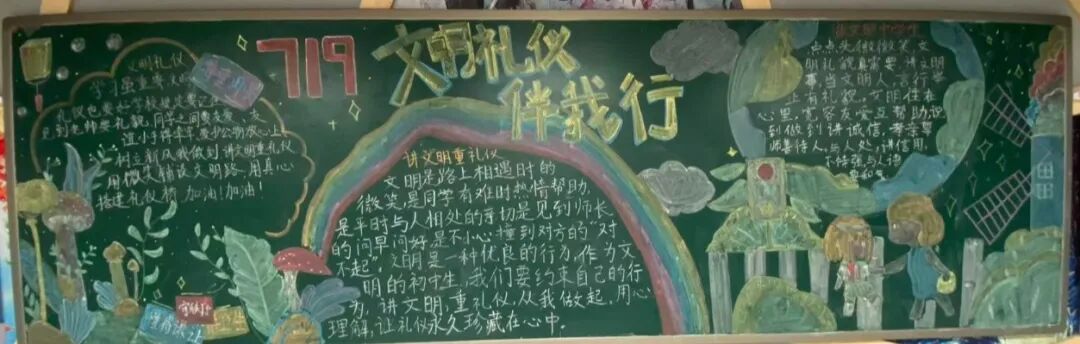 719
文明礼仪
伴我行
文明礼仪
学习虽重要
礼仪也要好学校规定要记
见到老师要礼貌,同学之间要友爱、友
谊小手牵牵牵要少公物放心上
树立新风我做到 讲文明重礼仪
用微笑铺设文明路、用真心
搭建礼仪桥 加油!加油!
守纪
讲文明重礼仪
文明是路上相遇时的
微笑是同学有难时热情帮助,
是平时与人相处的亲切是见到师长
的问早问好是不小心撞到对方的“对
不起”,文明是一种优良的行为,作为文
明的初中生,我们要约束自己的行
为,讲文明,重礼仪,从我做起,用心
理解,让礼仪永久珍藏在心中。
做文明中学生
点点头微微笑文
明礼貌真需要,讲文明
事当文明人,言行举
止有礼貌,文明住在
心里,宽容友爱互帮助说
到做到讲诚信,孝亲尊
师善待人,与人处,讲信用,